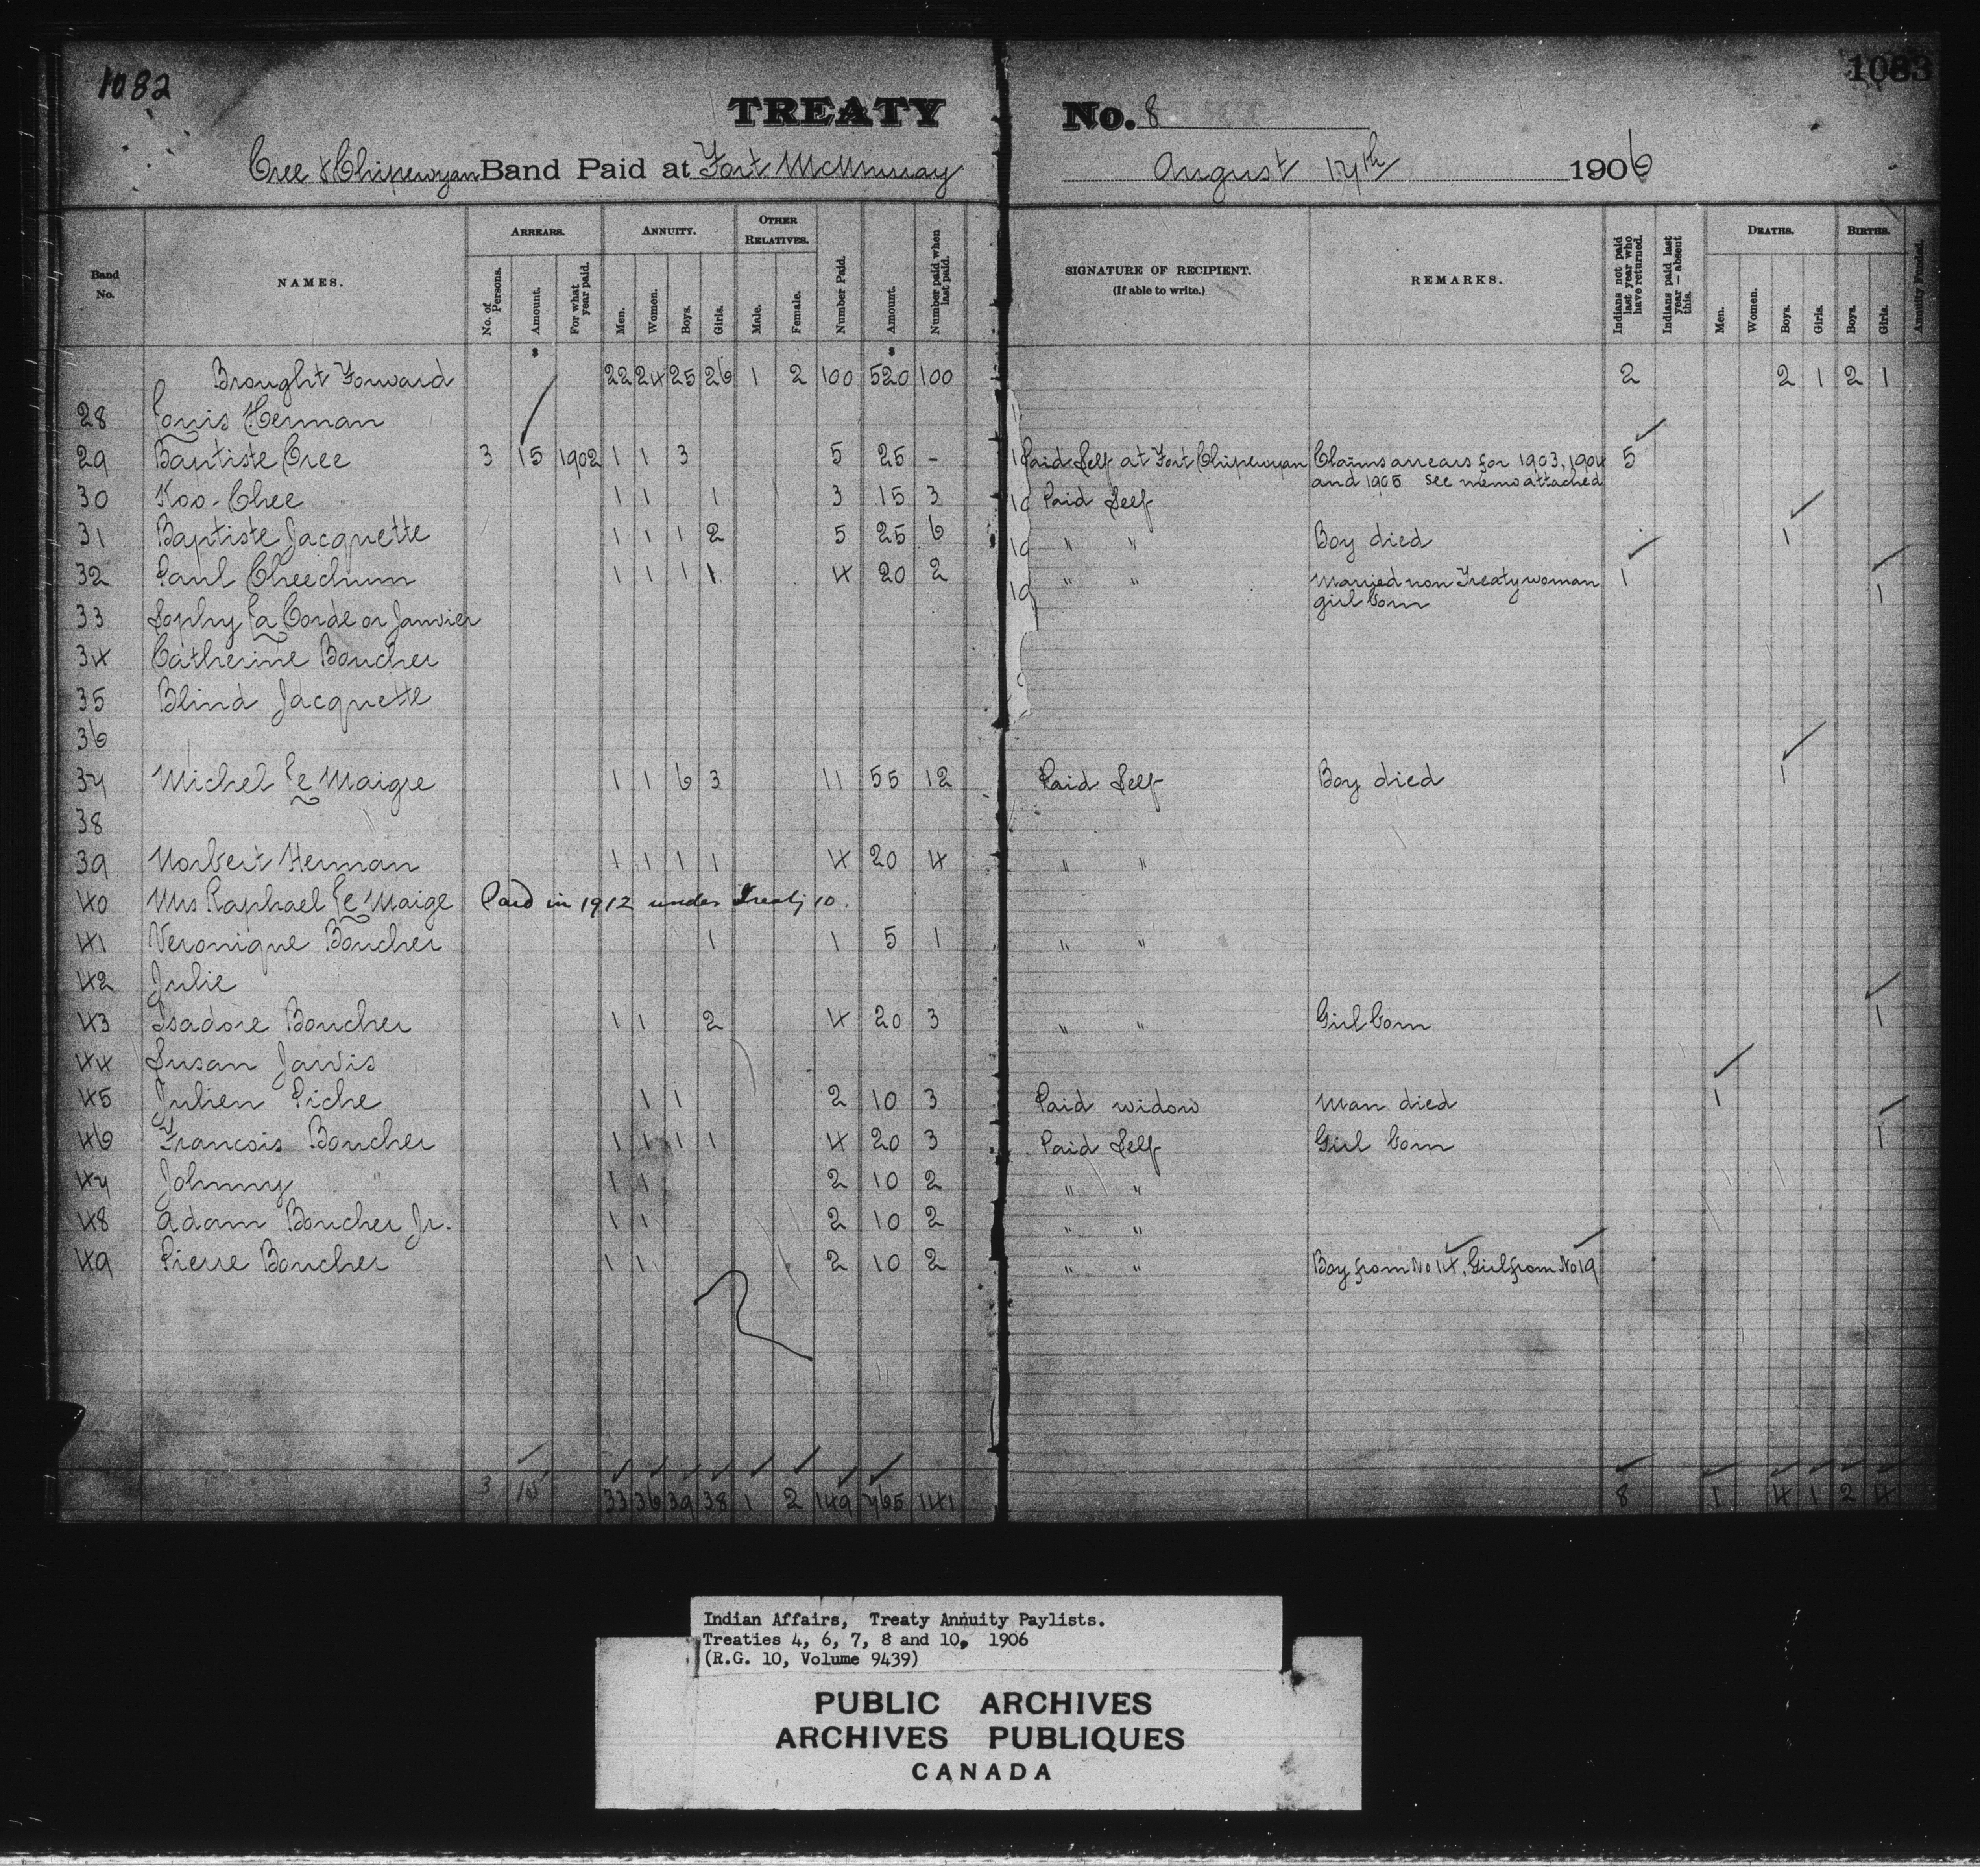 1082 1083
TREATY No. 8
Cree & Chipewyan Band Paid at Fort McMurray August 17th 1906
Band No. NAMES. ARREARS. No. of Persons. Amount. For what year paid. ANNUITY. Men. Women. Boys. Girls. OTHER RELATIVES. Male. Female. Number Paid. Amount. Number paid when last paid. SIGNATURE OF RECIPIENT. (If able to write.) REMARKS. Indians not paid last year who have returned. Indians paid last year—absent this. DEATHS. Men. Women. Boys. Girls. BIRTHS. Boys. Girls. Annuity Funded.
$ $
Brought Forward 22 24 25 26 1 2 100 520 100 2 2 1 2 1
28 Louis Herman
29 Baptiste Cree 3 15 1902 1 1 3 5 25 - Paid Self at Fort Chipewyan Claims arrears for 1903, 1904 5
and 1905 see memo attached
30 Koo-Chee 1 1 1 3 15 3 Paid Self
31 Baptiste Jacquette 1 1 1 2 5 25 6 " " Boy died 1
32 Paul Cheechum 1 1 1 1 4 20 2 " " Married non Treaty woman 1 1
girl born
33 Sophy La Corde or Janvier
34 Catherine Boucher
35 Blind Jacquette
36
37 Michel Le Maigre 1 1 6 3 11 55 12 Paid Self Boy died 1
38
39 Norbert Herman 1 1 1 1 4 20 4 " "
40 Mrs Raphael Le Maige Paid in 1912 under Treaty 10.
41 Veronique Boucher 1 1 5 1 " "
42 Julie
43 Isadore Boucher 1 1 2 4 20 3 " " Girl born 1
44 Susan Jarvis
45 Julien Piche 1 1 2 10 3 Paid widow Man died 1
46 Francois Boucher 1 1 1 1 4 20 3 Paid Self Girl born 1
47 Johnny " 1 1 2 10 2 " "
48 Adam Boucher Jr. 1 1 2 10 2 " "
49 Pierre Boucher 1 1 2 10 2 " " Boy from No 14, Girl from No 19
3 15 33 36 39 38 1 2 149 765 141 8 1 4 1 2 4
Indian Affairs, Treaty Annuity Paylists.
Treaties 4, 6, 7, 8 and 10, 1906
(R.G. 10, Volume 9439)
PUBLIC ARCHIVES
ARCHIVES PUBLIQUES
CANADA